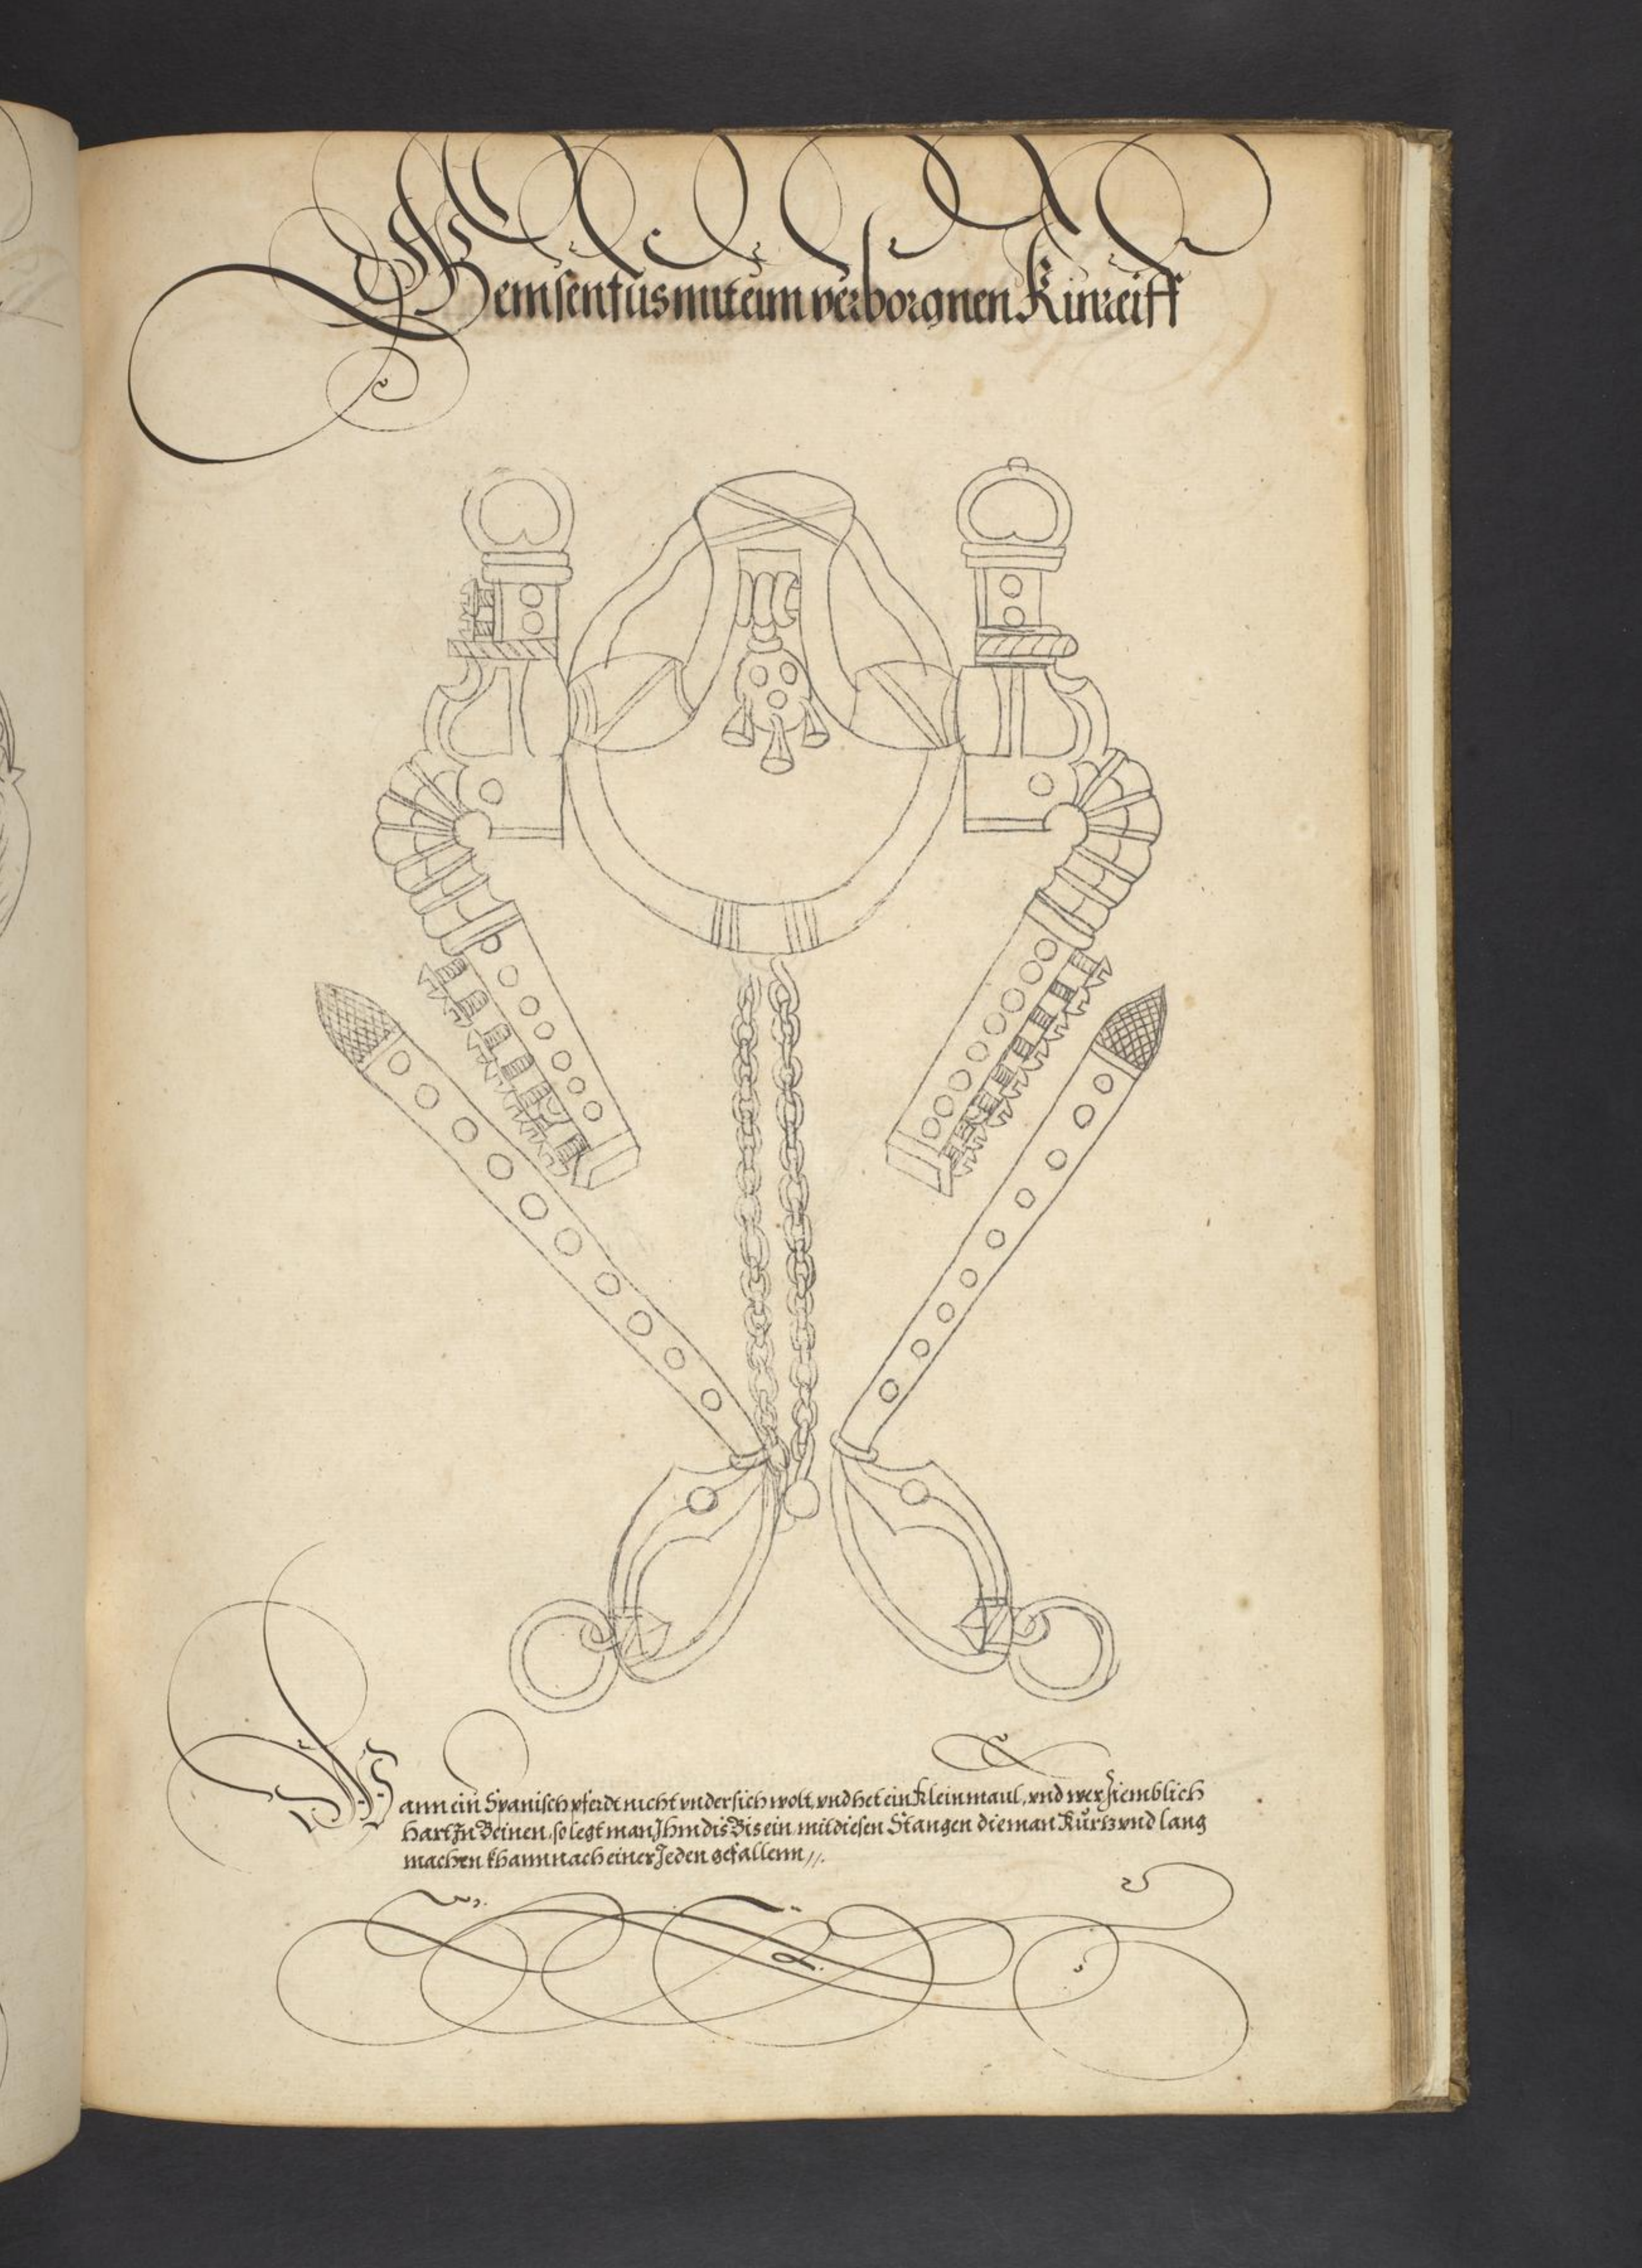 Gemsenfus mit eim verborgnen Kinreiff
Wann ein Spanisch pferdt nicht vndersich wolt, vnd het ein klein maul, vnd wer ziemblich
hart Zu Beinen, so legt man Jhm dis Bis ein mit diesen Stangen die man Kürtz vnd lang
machen khann nach einer Jeden gefallenn //.